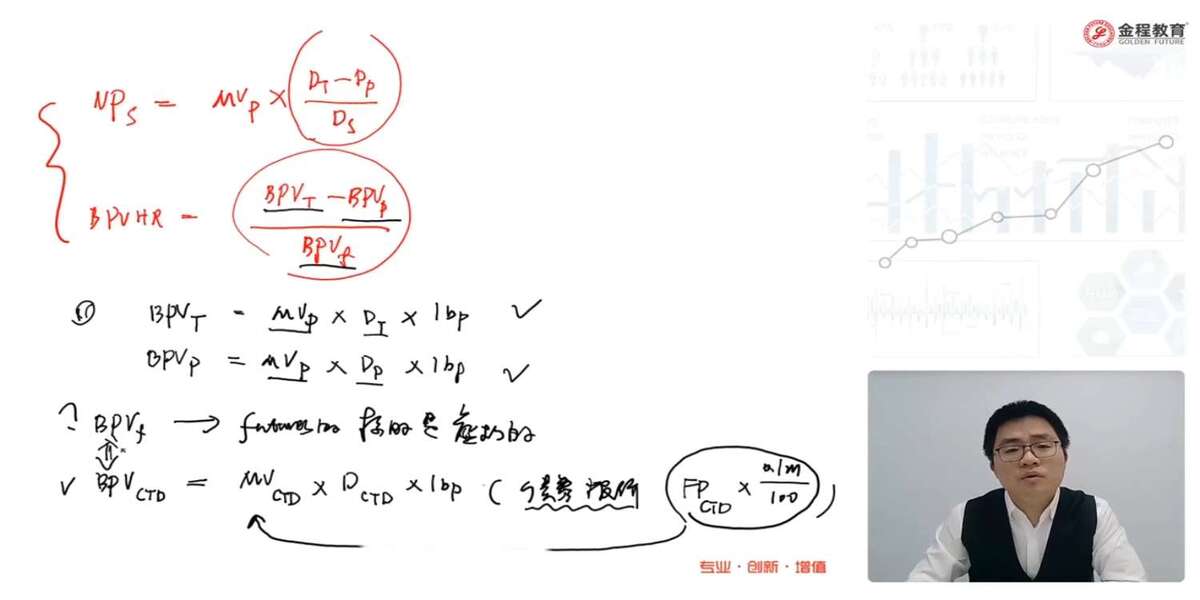 金程教育
GOLDEN FUTURE
NP_S = MV_P × (D_T − D_P) / D_S
BPVHR = (BPV_T − BPV_P) / BPV_f
① BPV_T = MV_P × D_T × 1bp ✓
BPV_P = MV_P × D_P × 1bp ✓
? BPV_f → futures的 标的是 虚拟的
✓ BPV_CTD = MV_CTD × D_CTD × 1bp ( 报价 FP_CTD × a/m / 100 )
专业·创新·增值